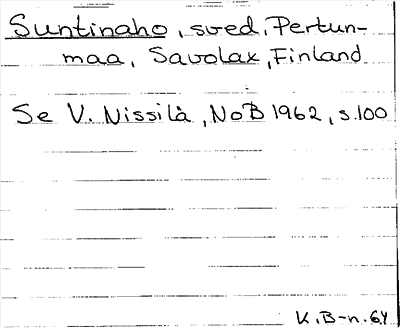 Suntinaho, sved, Pertun-
maa, Savolax, Finland
Se V. Nissilä, NoB 1962, s.100
K.B-n.64